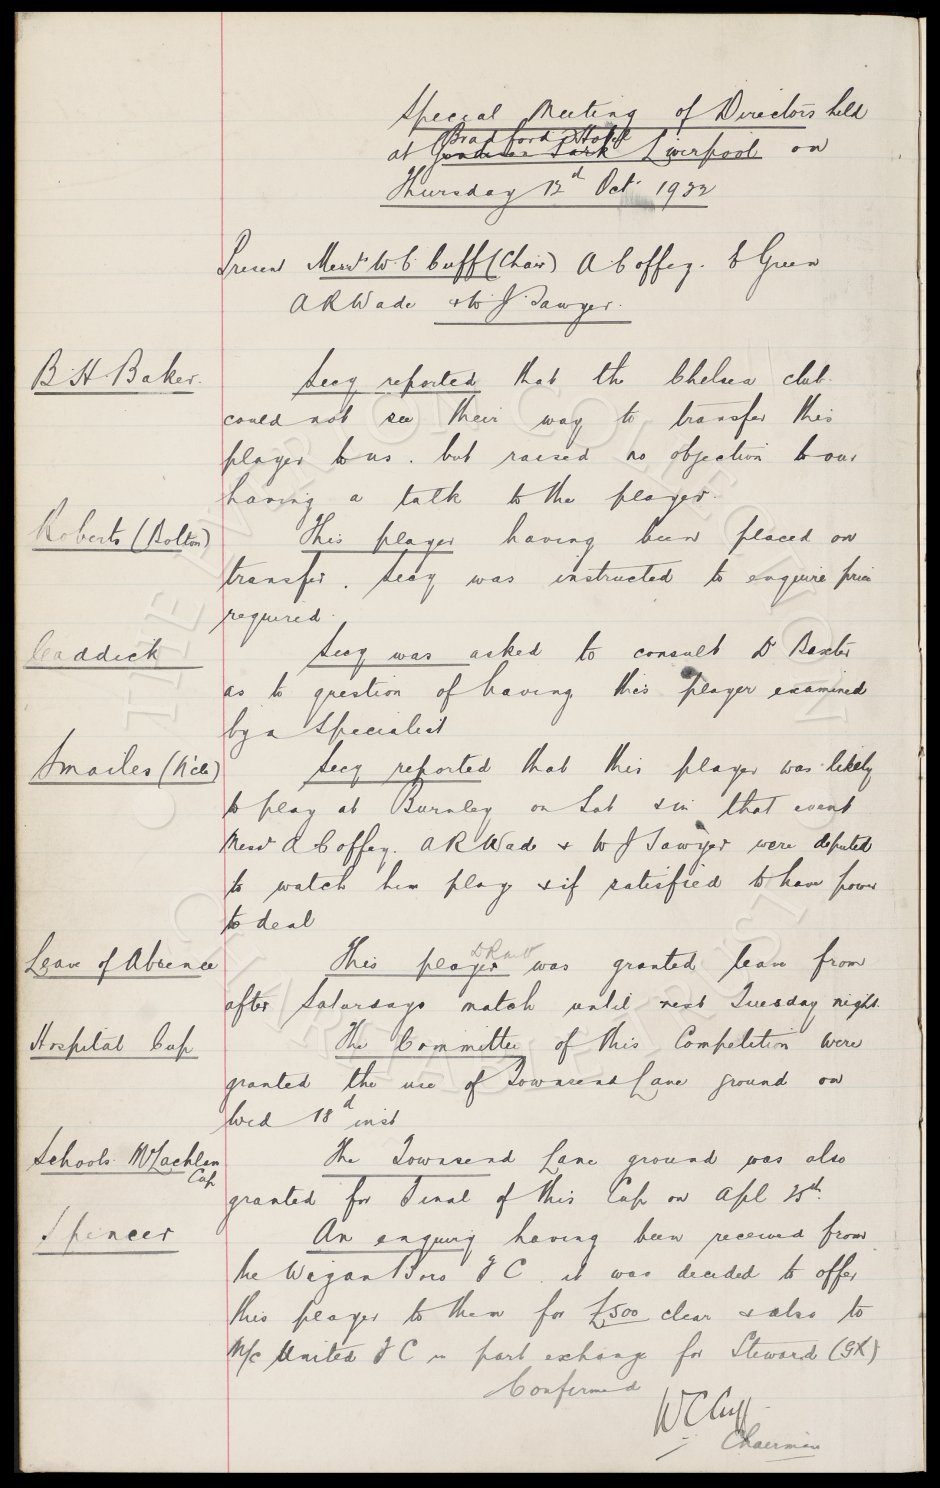 Special Meeting of Directors held
at Goodison Park Bradford Hotel Liverpool on
Thursday 12th Oct 1922
Present Messrs W. C. Cuff (Chair) A. Coffey. E Green
A R Wade & W J Sawyer.
B. H. Baker.
Secy reported that the Chelsea club
could not see their way to transfer this
player to us. but raised no objection to our
having a talk to the player.
Roberts (Bolton)
This player having been placed on
transfer. Secy was instructed to enquire price
required.
Caddick
Secy was asked to consult Dr Baxter
as to question of having this player examined
by a Specialist
Smailes (N'cle)
Secy reported that this player was likely
to play at Burnley on Sat & in that event
Messrs A Coffey. A R Wade & W J Sawyer were deputed
to watch him play & if satisfied to have power
to deal
Leave of Absence
This player was granted leave from
after Saturdays match until next Tuesday night.
Hospital Cup
The Committee of this Competition were
granted the use of Townsend Lane ground on
Wed 18th inst
Schools McLachlan
Cup
The Townsend Lane ground was also
granted for Final of this Cup on Apl 25th.
Spencer
An enquiry having been received from
the Wigan Boro F C it was decided to offer
this player to them for £500 clear & also to
M/c United F C in part exchange for Steward (GK)
Confirmed
W C Cuff
Chairman
THE EVERTON COLLECTION
CHARITABLE TRUST